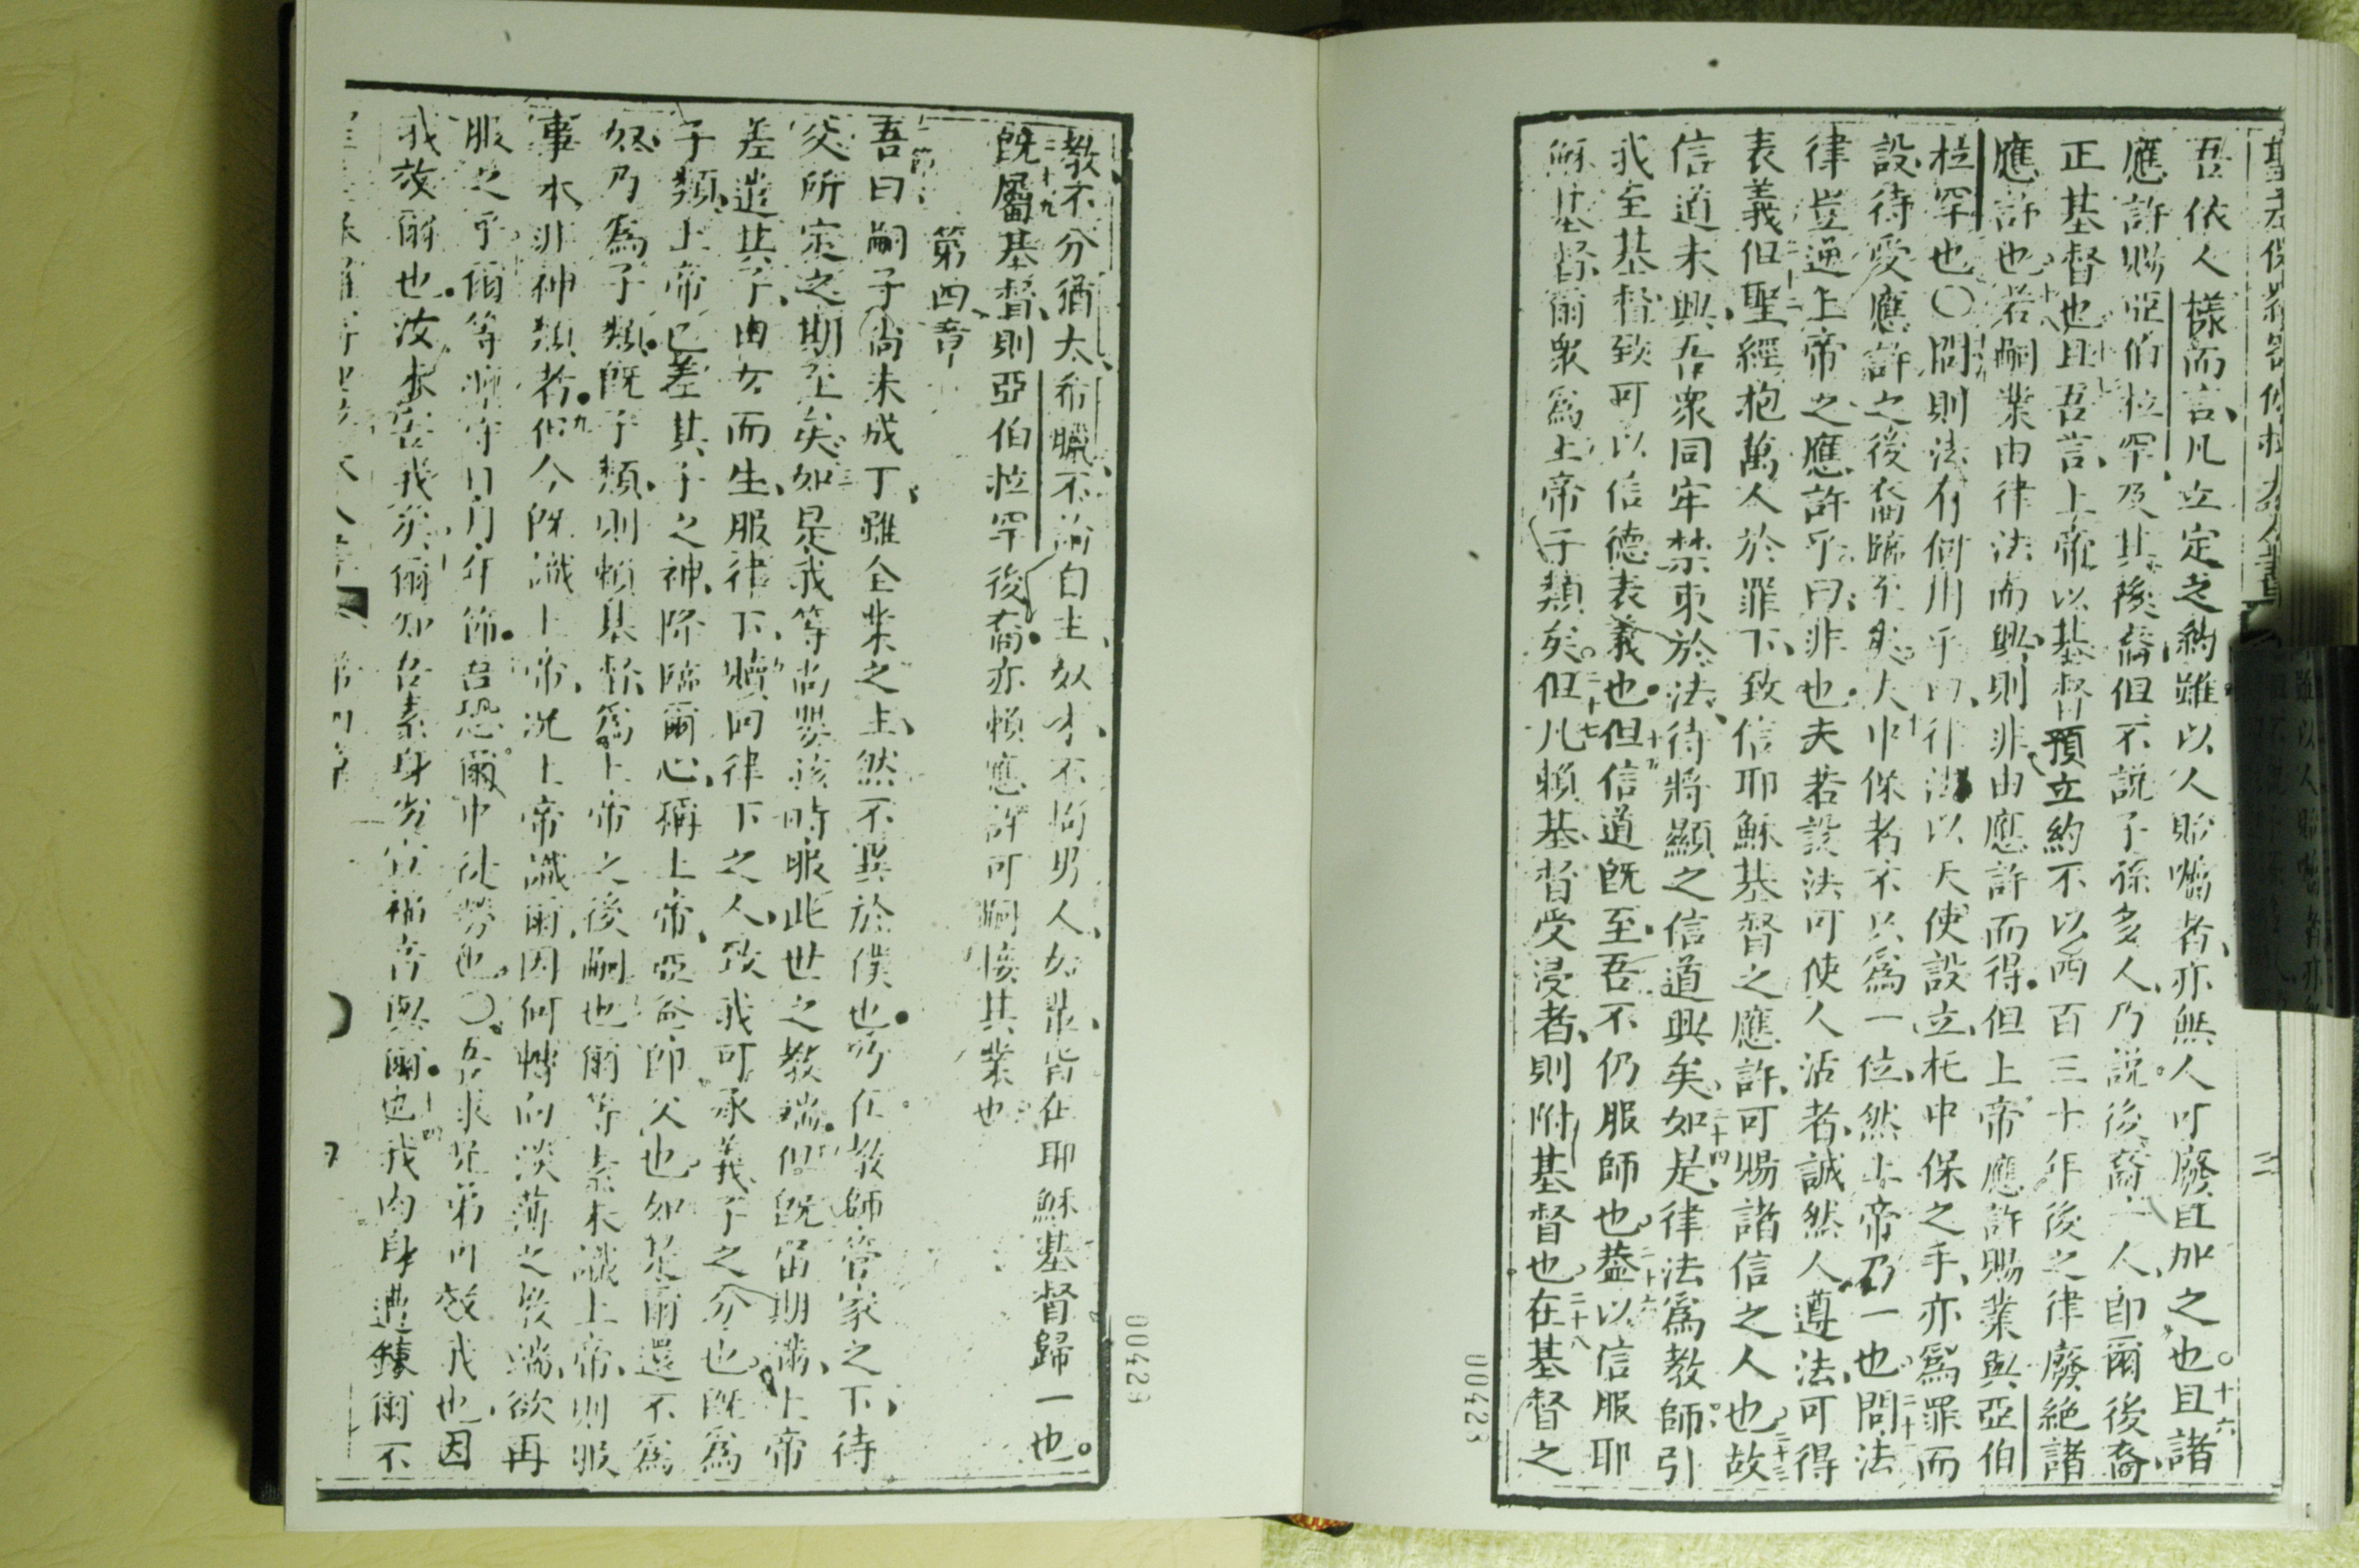 吾依人樣而言凡立定之約雖以人貽囑者亦無人可廢且加之也。十六且諸
應許賜亞伯拉罕及其後裔但不説子孫多人乃説後裔一人即爾後裔
正基督也且吾言上帝以基督預立約不以四百三十年後之律廢絶諸
應許也十八若嗣業由律法而興則非由應許而得但上帝應許賜業與亞伯
拉罕也〇問則法有何用乎曰律法以天使設立托中保之手亦爲罪而
設待受應許之後裔臨至矣夫中保者不以爲一位然上帝乃一也二十一問法
律豈逆上帝之應許乎曰非也夫若設法可使人活者誠然人遵法可得
表義但二十二聖經抱萬人於罪下致信耶穌基督之應許可賜諸信之人也二十三故
信道未興吾衆同牢禁束於法待將顯之信道興矣二十四如是律法爲教師引
我至基督致可以信德表義也但信道既至吾不仍服師也二十六蓋以信服耶
穌基督爾衆爲上帝子類矣二十七但凡賴基督受浸者則附基督也二十八在基督之
00423
00429
教不分猶太希臘不論自主奴才不拘男人女世皆在耶穌基督歸一也。
二十九既屬基督則亞伯拉罕後裔亦賴應許可嗣接其業也
第四章
吾曰嗣子尚未成丁雖全業之主然不異於僕也乃在教師管家之下待
父所定之期至矣三如是我等尚嬰孩時服此世之教端四但既留期滿上帝
差遣其子由女而生服律下贖回律下之人致我可承義子之分也既爲
子類上帝已差其子之神降臨爾心稱上帝亞爸即父也如是爾還不爲
奴乃爲子類既子類則賴基督爲上帝之後嗣也爾等素未識上帝則服
事本非神類者九但今既識上帝况上帝識爾因何轉向淡薄之教端欲再
服之乎爾等頻守日月年節吾恐爾中徒勞也〇吾求兄弟可效我也因
我放爾也汝未害我矣爾知吾素身劣宣福音與爾也十四我肉身遭錬爾不